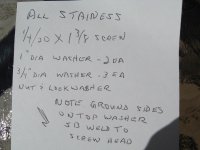 ALL STAINESS
1/4/20 X 1 3/8 SCREW
1" DIA WASHER - 2 EA
3/4" DIA WASHER - 3 EA
NUT & LOCKWASHER
NOTE GROUND SIDES
ON TOP WASHER
SB WELD TO
SCREW HEAD